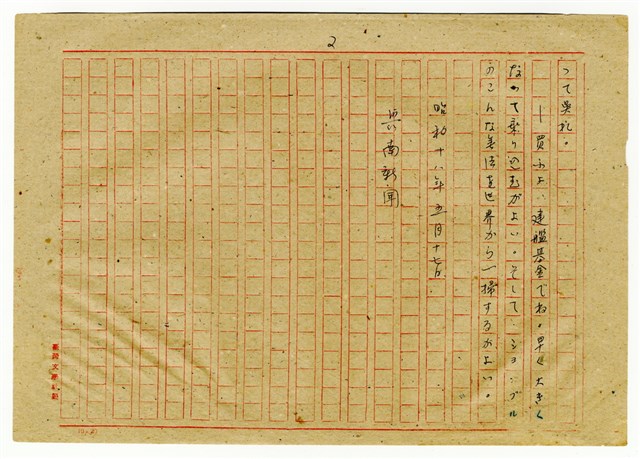 2
って呉れ。
―買ふよ、建艦基金でね。早く大きく
なって乗り込むがよい。そして、ジョン・ブル
のこんな無法を世界から一掃するがよい。
昭和十八年五月十七日
興南新聞